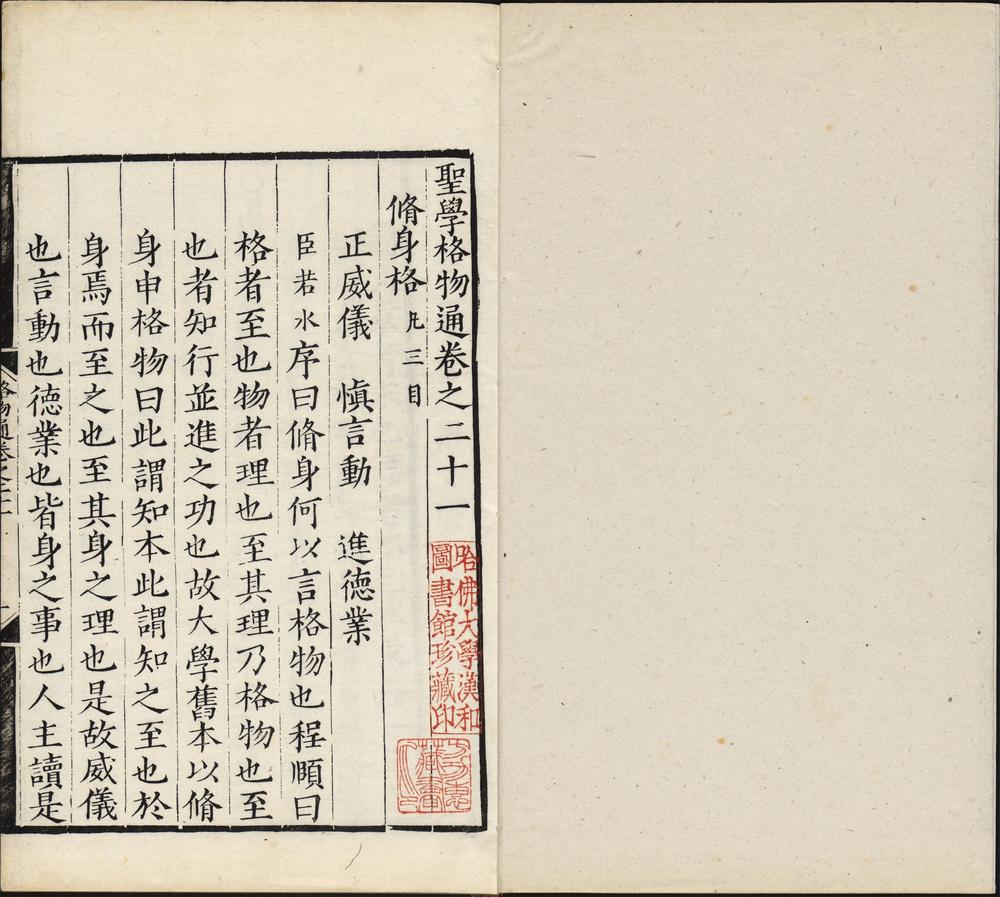 聖學格物通卷之二十一
脩身格 凡三目
正威儀 愼言動 進德業
臣若水序曰脩身何以言格物也程頤曰
格者至也物者理也至其理乃格物也至
也者知行並進之功也故大學舊本以脩
身申格物曰此謂知本此謂知之至也於
身焉而至之也至其身之理也是故威儀
也言動也德業也皆身之事也人主讀是
格物通卷之二十一
哈佛大學漢和
圖書館珍藏印